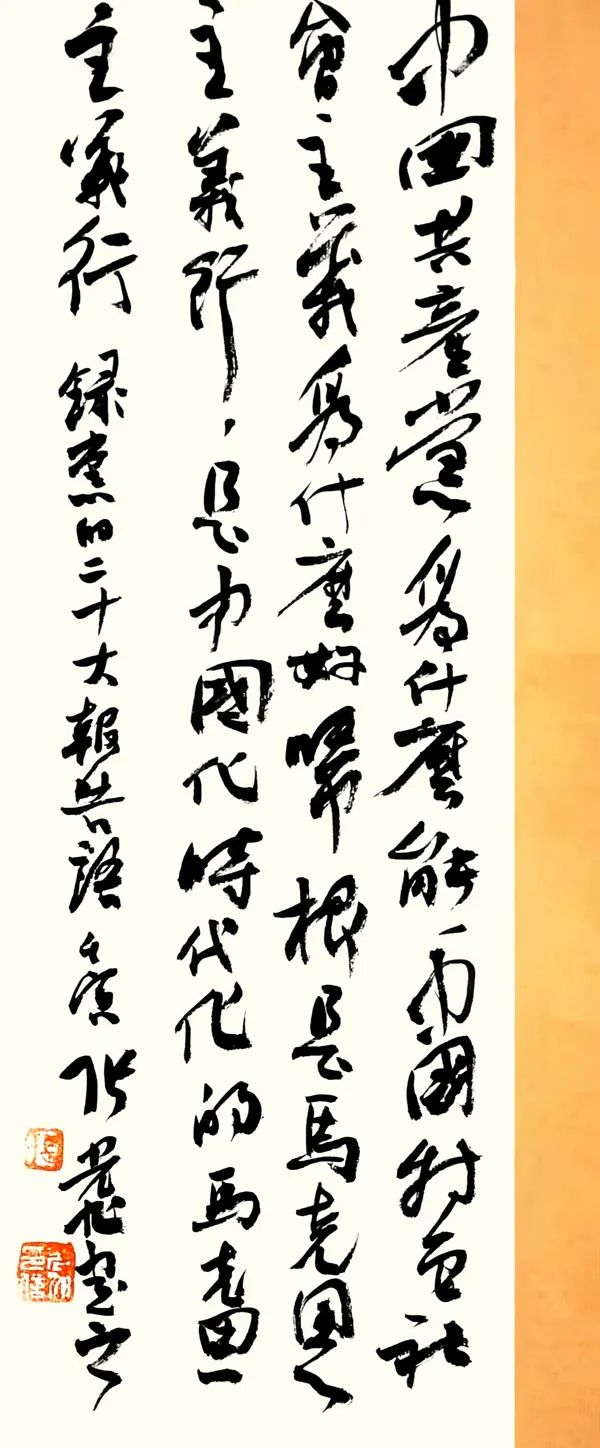 中國共產黨爲什麽能、中國特色社
會主義爲什麽好歸根是馬克思
主義行、是中國化時代化的馬克思
主義行 錄黨的二十大報告語 壬寅 張書之